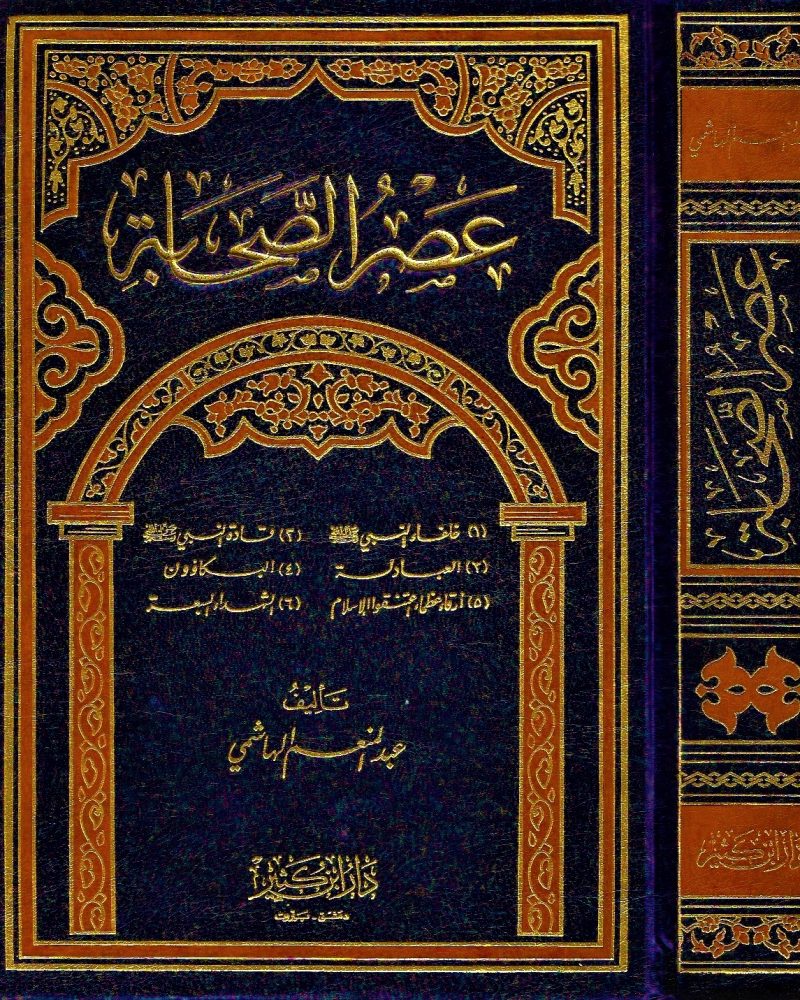 عَصْرُ الصَّحَابَةِ
(١) خلفاء النبي ﷺ (٢) قادة النبي ﷺ
(٣) العبادلة (٤) البكاؤون
(٥) أرقاء عظماء اعتنقوا الإسلام (٦) الشهداء السبعة
تأليفُ
عبد المنعم الهاشمي
دار ابن كثير
دمشق - بيروت
عبد المنعم الهاشمي
عصر الصحابة
دار ابن كثير